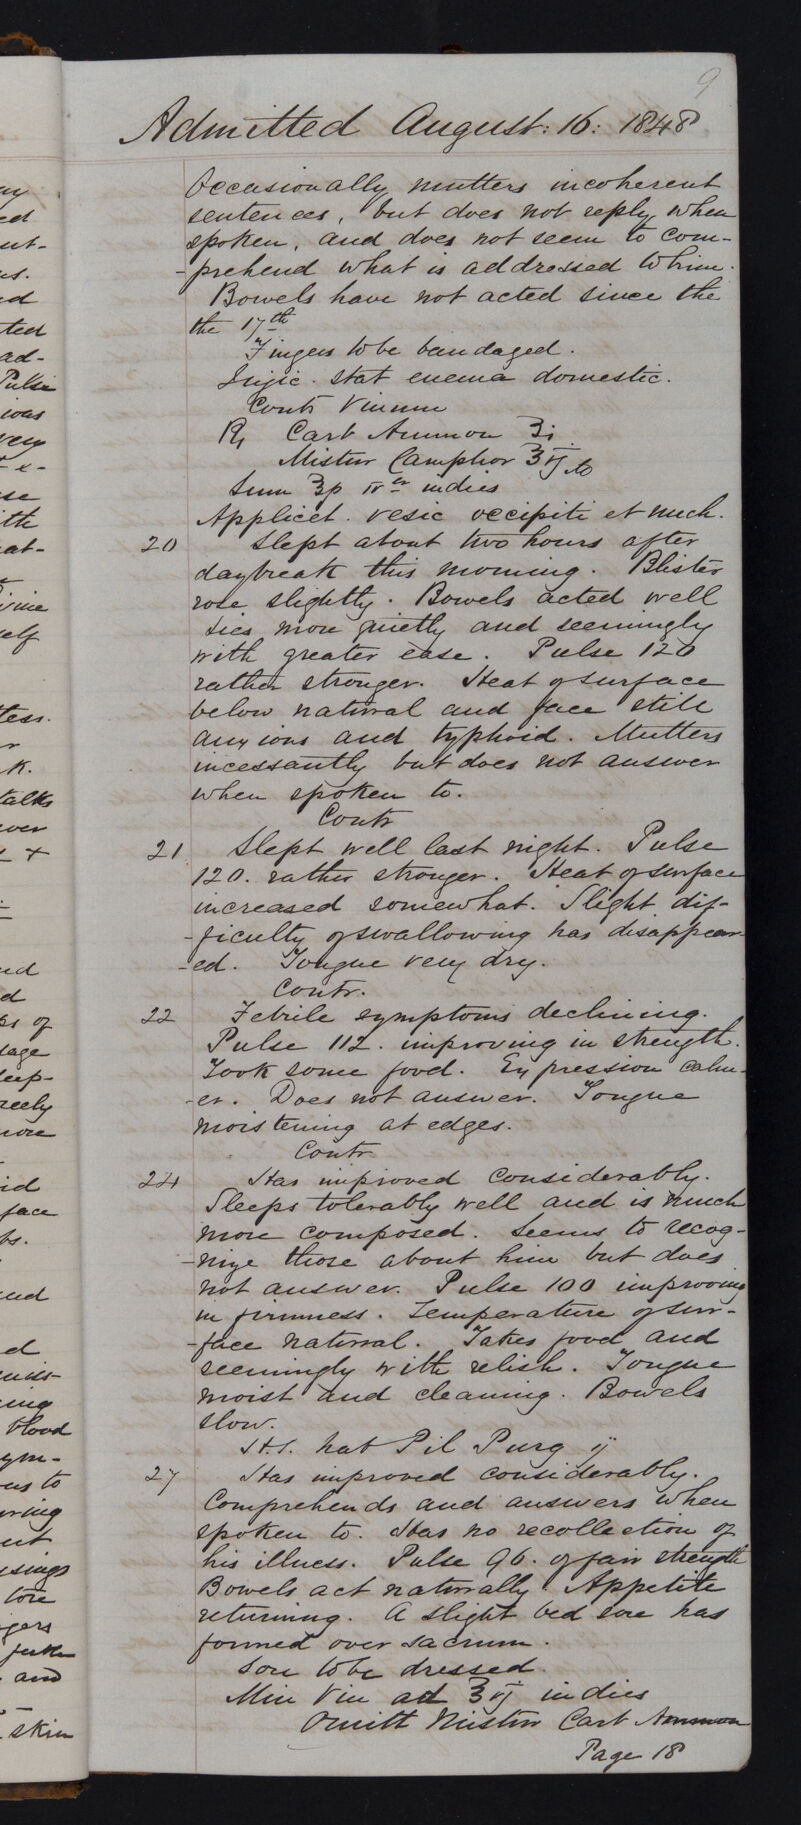 9
Admitted August: 16: 1848
Occasionally mutters incoherent
sentences, but does not reply when
spoken, and does not seem to com-
-prehend what is addressed to him.
Bowels have not acted since the
the 17th
Fingers to be bandaged.
Injic. stat enema domestic.
Contr Vinum
Rx Carb Ammon ʒi
Mistur Camphor ℥vj
Sum ℥p indies
Applicet. vesic occipiti et nuch.
20 Slept about two hours after
daybreak this morning. Blister
rose slightly. Bowels acted well
Lies more quietly and seemingly
with greater ease. Pulse 120
rather stronger. Heat of surface
below natural and face still
anxious and typhoid. Mutters
incessantly but does not answer
when spoken to.
Contr
21 Slept well last night. Pulse
120. rather stronger. Heat of surface
increased somewhat. Slight dif-
-ficulty of swallowing has disappear
-ed. Tongue very dry.
Contr.
22 Febrile symptoms declining.
Pulse 112. improving in strength.
Took some food. Expression calm-
-er. Does not answer. Tongue
moistening at edges.
Contr
24 Has improved considerably.
Sleeps tolerably well and is much
more composed. Seems to recog-
-nize those about him but does
not answer. Pulse 100 improving
in firmness. Temperature of sur-
-face natural. Takes food and
seemingly with relish. Tongue
moist and cleaning. Bowels
slow.
H.S. hab Pil Purg ij
27 Has improved considerably.
Comprehends and answers when
spoken to. Has no recollection of
his illness. Pulse 96. of fair strength
Bowels act naturally. Appetite
returning. A slight bed sore has
formed over sacrum.
Sore to be dressed.
Min Vin ad ℥vj indies
Omitt Mistur Carb Ammon
Page 18